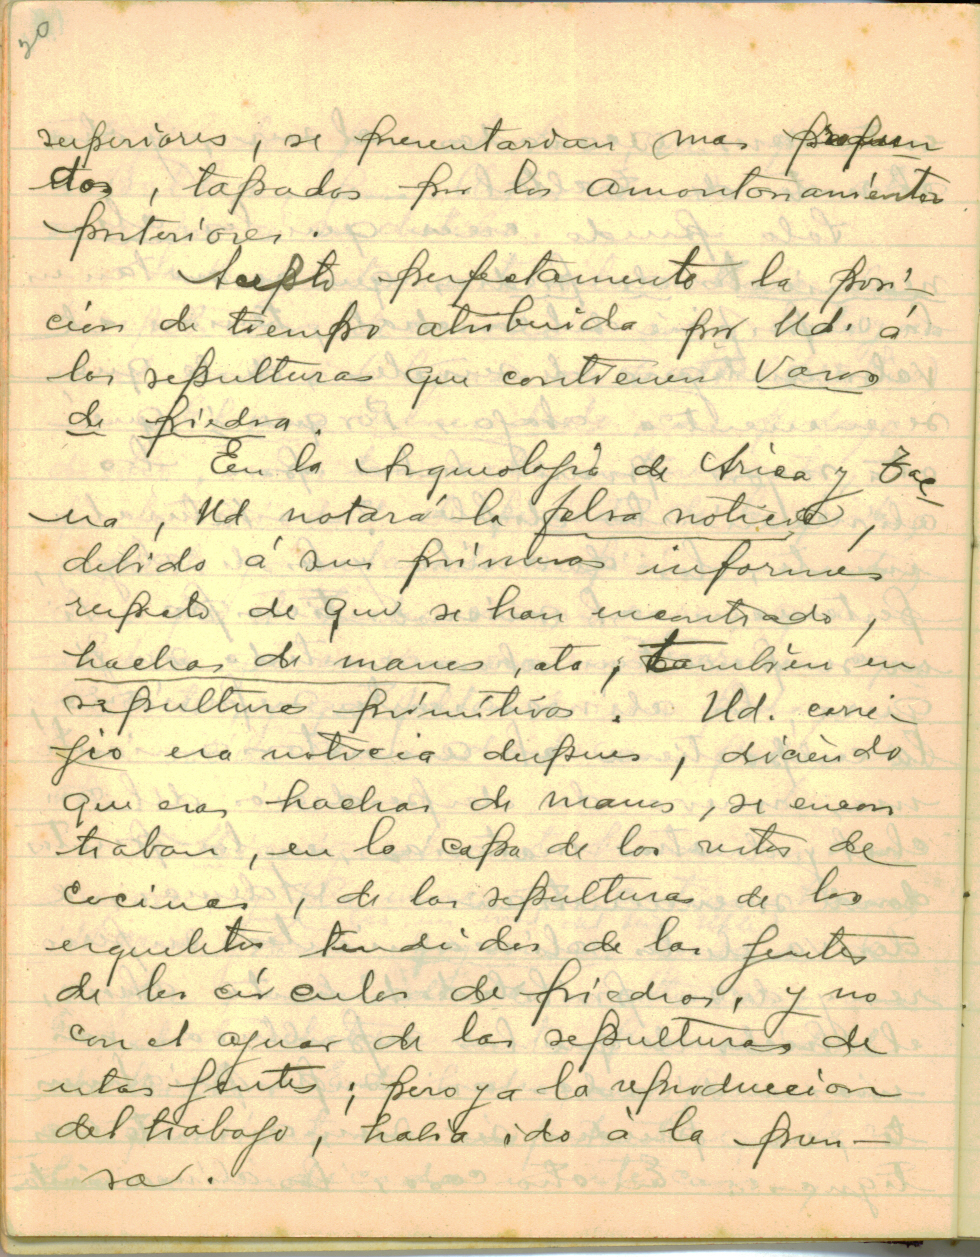 20
superiores, se presentarian mas profun
dos, tapados por los amontonamientos
posteriores.
Acepto perfectamente la posi-
ción de tiempo atribuida por Ud. á
las sepulturas que contienen Vasos
de piedra.
En la Arqueología de Arica y Tac
na, Ud notará la falsa noticia,
debido á sus primeros informes
respecto de que se han encontrado,
hachas de manos, etc, también en
sepulturas primitivas. Ud. corri-
gio esa noticia despues, diciendo
que esas hachas de manos, se encon
traban, en la capa de los restos de
cocinas, de las sepulturas de los
esqueletos tendidos de las gentes
de los círculos de piedras, y no
con el ajuar de las sepulturas de
estas gentes; pero ya la reproduccion
del trabajo, habia ido à la pren-
sa.